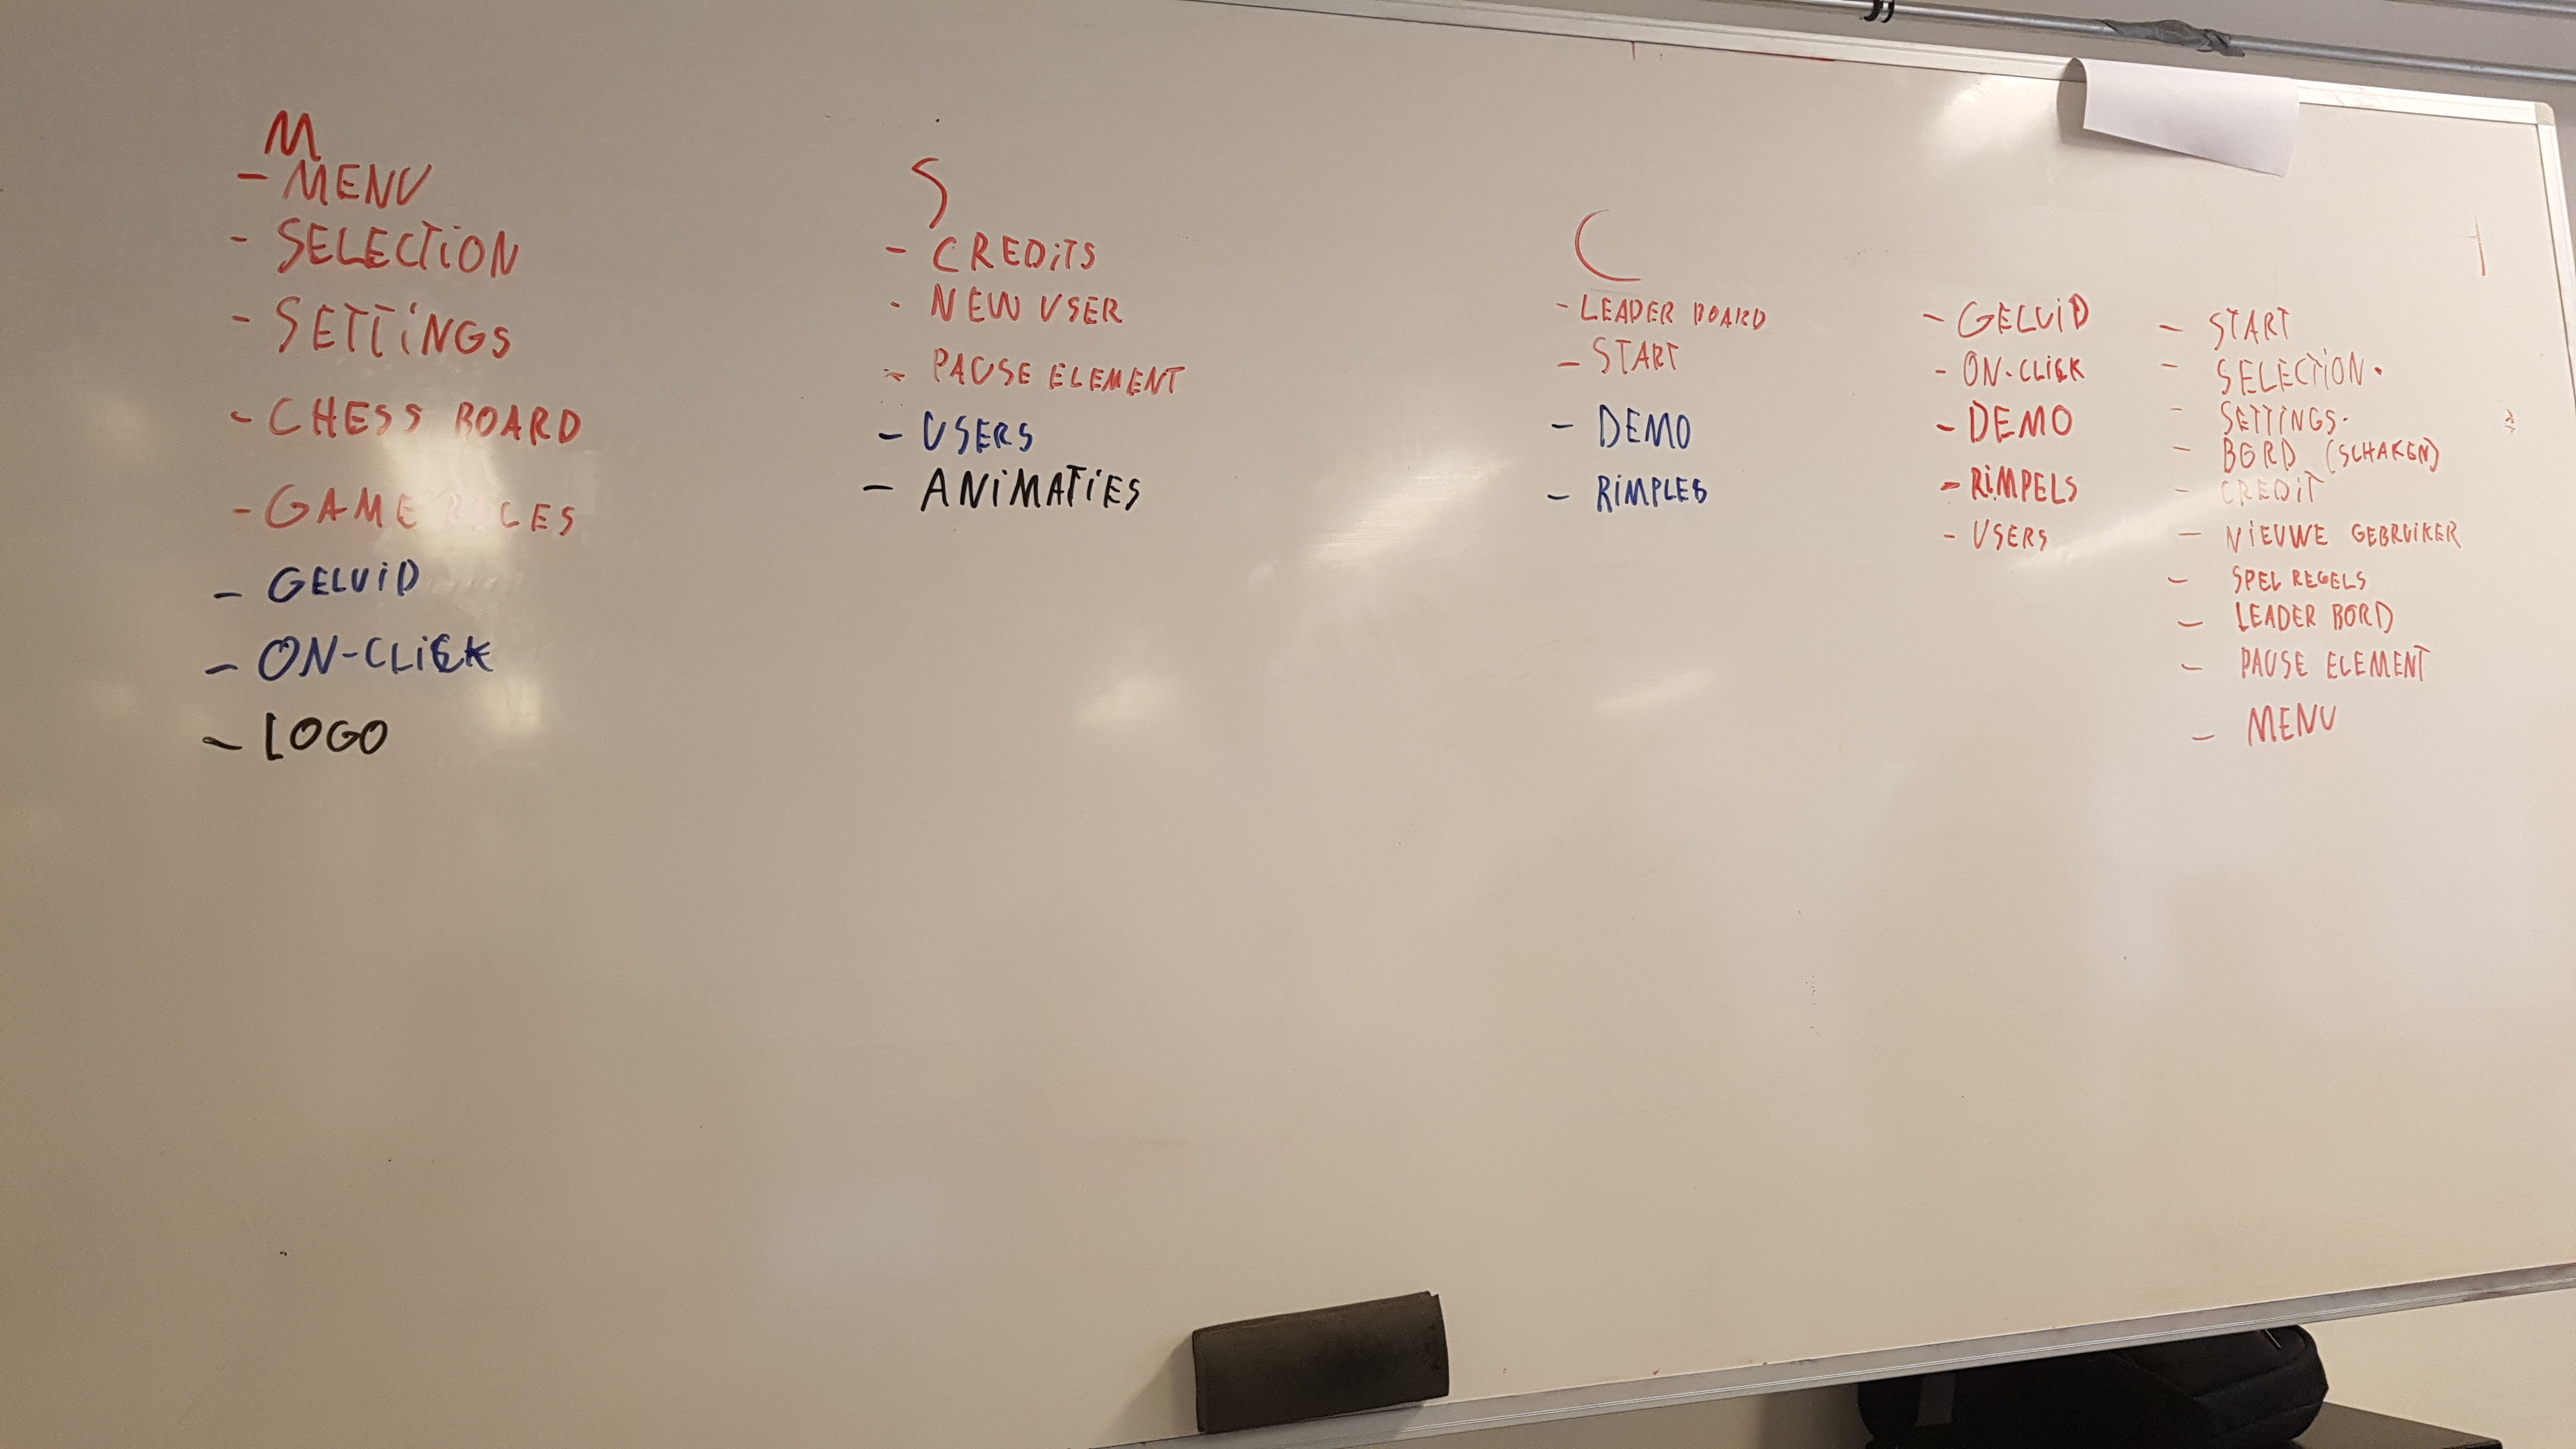 M
- MENU
- SELECTiON
- SETTiNGS
- CHESS BOARD
- GAME
- GELUiD
- ON-CLiCK
- LOGO
S
- CREDiTS
- NEW USER
- PAUSE ELEMENT
- USERS
- ANiMATiES
C
- LEADER BOARD
- START
- DEMO
- RiMPLES
- GELUiD
- ON-CLiCK
- DEMO
- RiMPELS
- USERS
- START
- SELECTiON.
- SETTiNGS.
- BORD (SCHAKEN)
- CREDiT
- NiEUWE GEBRUiKER
- SPEL REGELS
- LEADER BORD
- PAUSE ELEMENT
- MENU